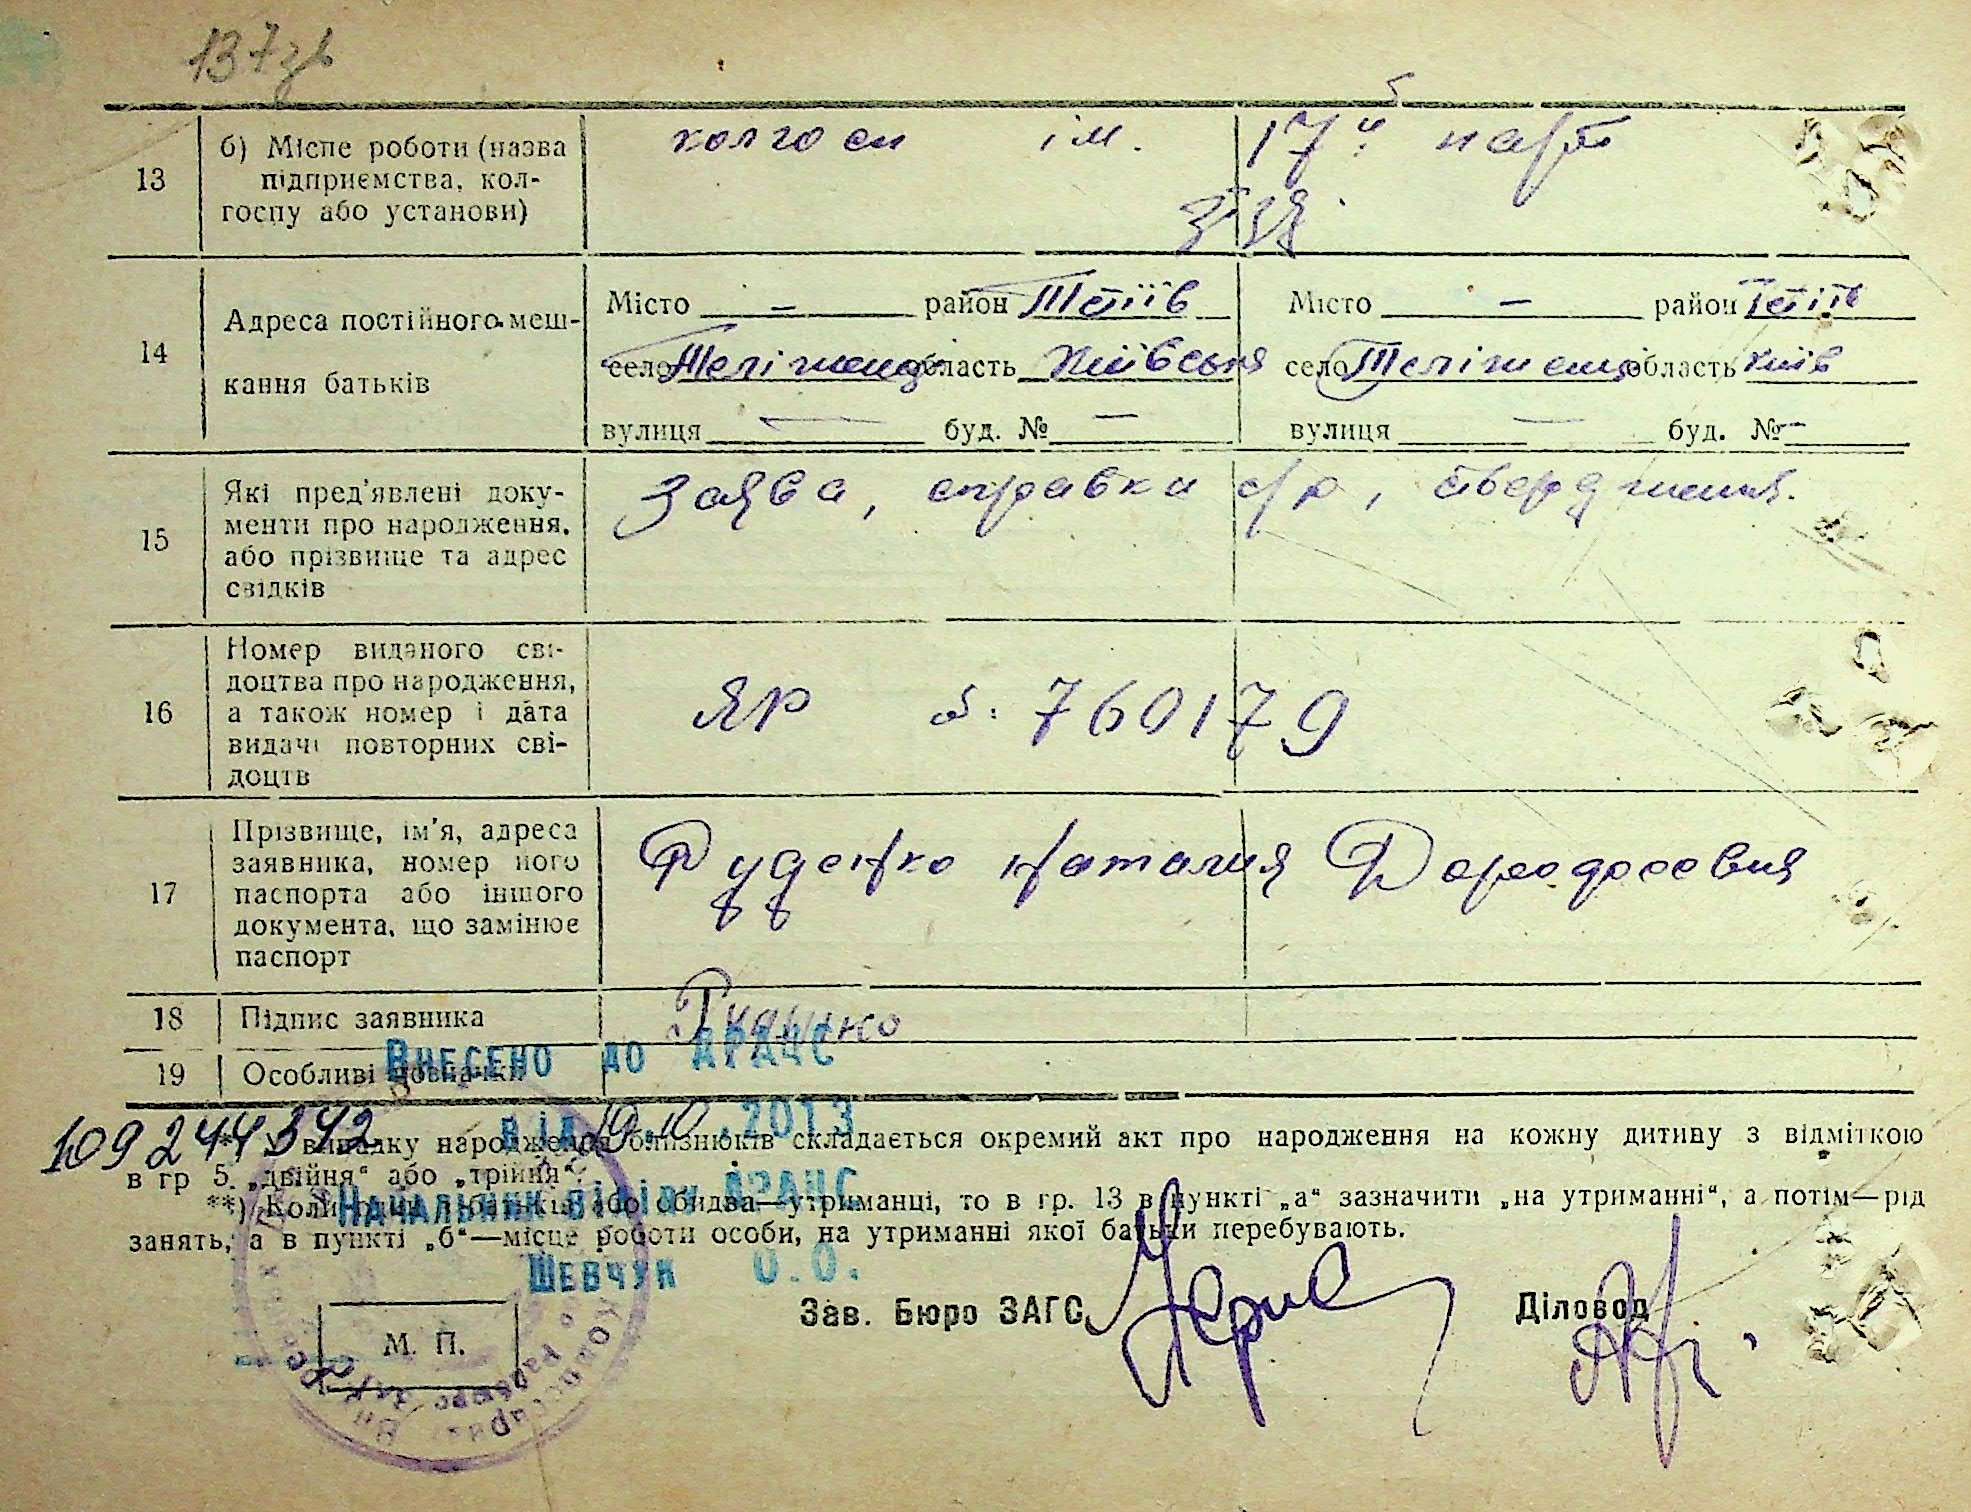 137зв
13
б) Місце роботи (назва
підприємства, кол-
госпу або установи)
колгосп ім. 17й парт
з'їзд
14
Адреса постійного меш-
кання батьків
Місто — район Тетіїв
село Теліжинці область Київська
вулиця — буд. № —
Місто — район Тетіїв
село Теліжинці область Київ
вулиця — буд. № —
15
Які пред’явлені доку-
менти про народження,
або прізвище та адрес
свідків
Заява, справка с/р,ствердження.
16
Номер виданого сві-
доцтва про народження,
а також номер і дата
видачі повторних сві-
доцтв
ЯР 760179
17
Прізвище, ім’я, адреса
заявника, номер його
паспорта або іншого
документа, що замінює
паспорт
Руденко Наталия Феодосевия
18
Підпис заявника
Руденко
19
Особливі позначки
Внесено до ДРАЦС
від 19.10.2013
109244342
*) У випадку народження близнюків складається окремий акт про народження на кожну дитину з відміткою
в гр 5 „двійня“ або „трійня“.
Начальник відділу ДРАЦС
**) Коли один з батьків або обидва—утриманці, то в гр. 13 в пункті „а“ зазначити „на утриманні“, а потім—рід
занять, а в пункті „б“—місце роботи особи, на утриманні якої батьки перебувають.
Шевчук О.О.
Зав. Бюро ЗАГС
Діловод
М. П.